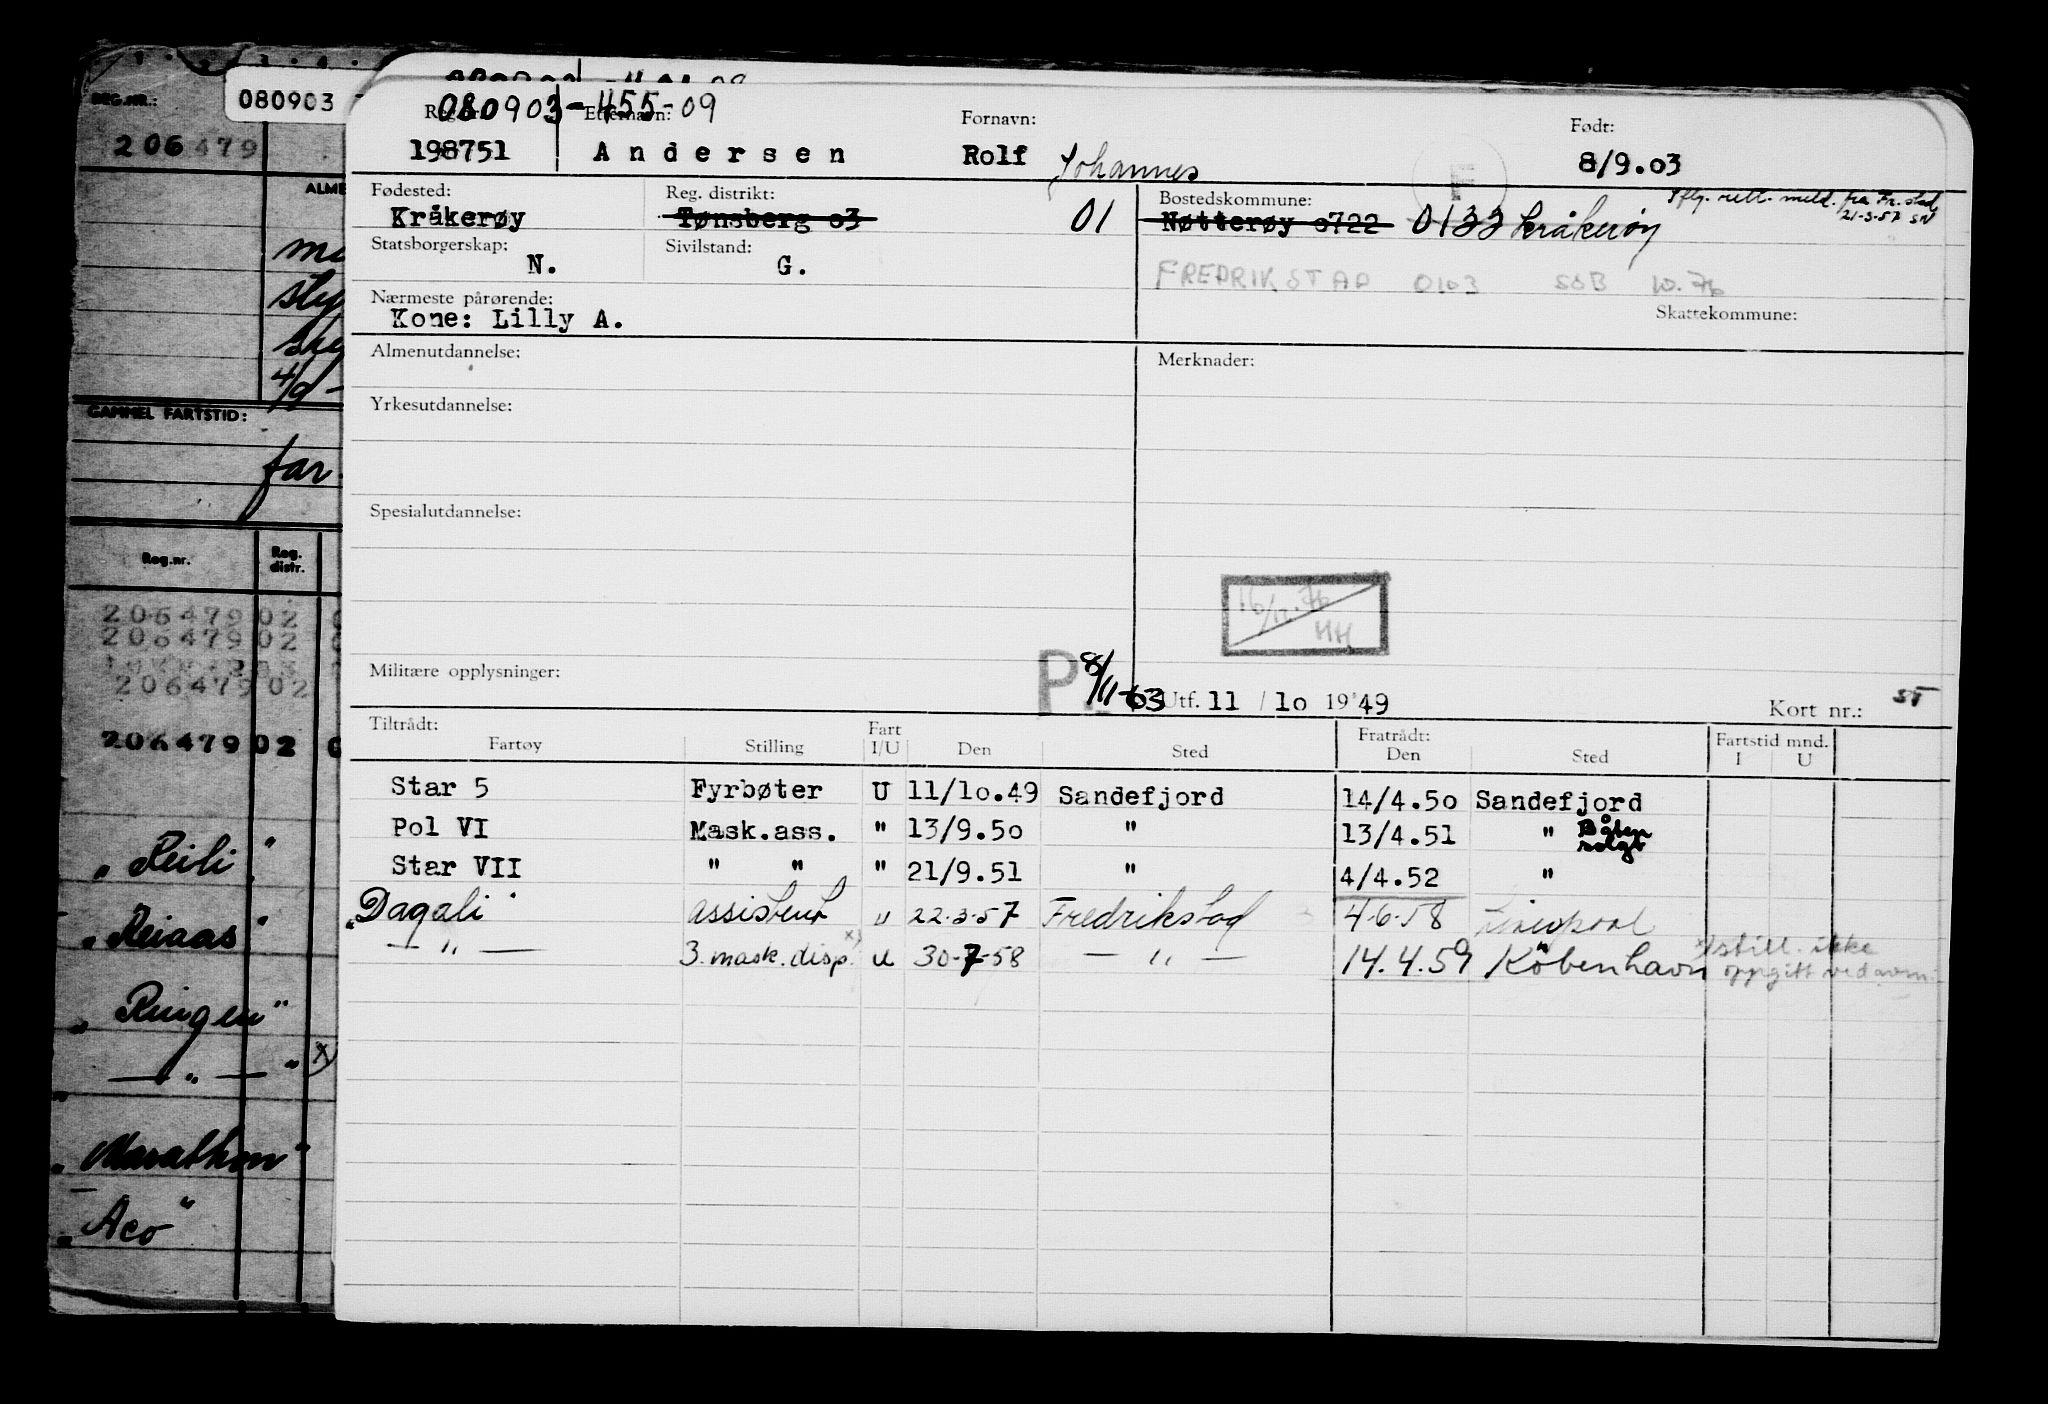 080903
REG.NR.:
206479
GAMMEL FARTSTID:
far
Reg.nr. Reg. distr.
206479 02
206479 02
206479 02
206479 02
„Reili"
„Reiaas"
„Ringen"
— " — " x)
„Marathon"
„Aco"
080903-455-09
Etternavn: Fornavn: Født:
198751 Andersen Rolf Johannes 8/9.03
Fødested: Reg. distrikt: Bostedskommune:
Kråkerøy Tønsberg o3 01 Nøtterøy o722 0133 Kråkerøy
Iflg. rett. meld. fra Fr.stad
21-3-57 SN
Statsborgerskap: Sivilstand:
N. G.
FREDRIKSTAD 0103 SSB 10.76
Nærmeste pårørende: Skattekommune:
Kone: Lilly A.
Almenutdannelse: Merknader:
Yrkesutdannelse:
Spesialutdannelse:
16/11.76
HH
Militære opplysninger: P 8/11-63 Utf. 11 / 1o 19'49 Kort nr.:
Tiltrådt: Fart Fratrådt: Fartstid mnd.
Fartøy Stilling I/U Den Sted Den Sted I U
Star 5 Fyrbøter U 11/1o.49 Sandefjord 14/4.5o Sandefjord
Pol VI Mask.ass. " 13/9.5o " 13/4.51 " Båten solgt
Star VII " " " 21/9.51 " 4/4.52 "
„Dagali" assistent " 22-3-57 Fredrikstad 4-6-58 Liverpool
— " — 3. mask. disp. x) U 30-7-58 — " — 14.4.59 København x) still. ikke
oppgitt ved avm.